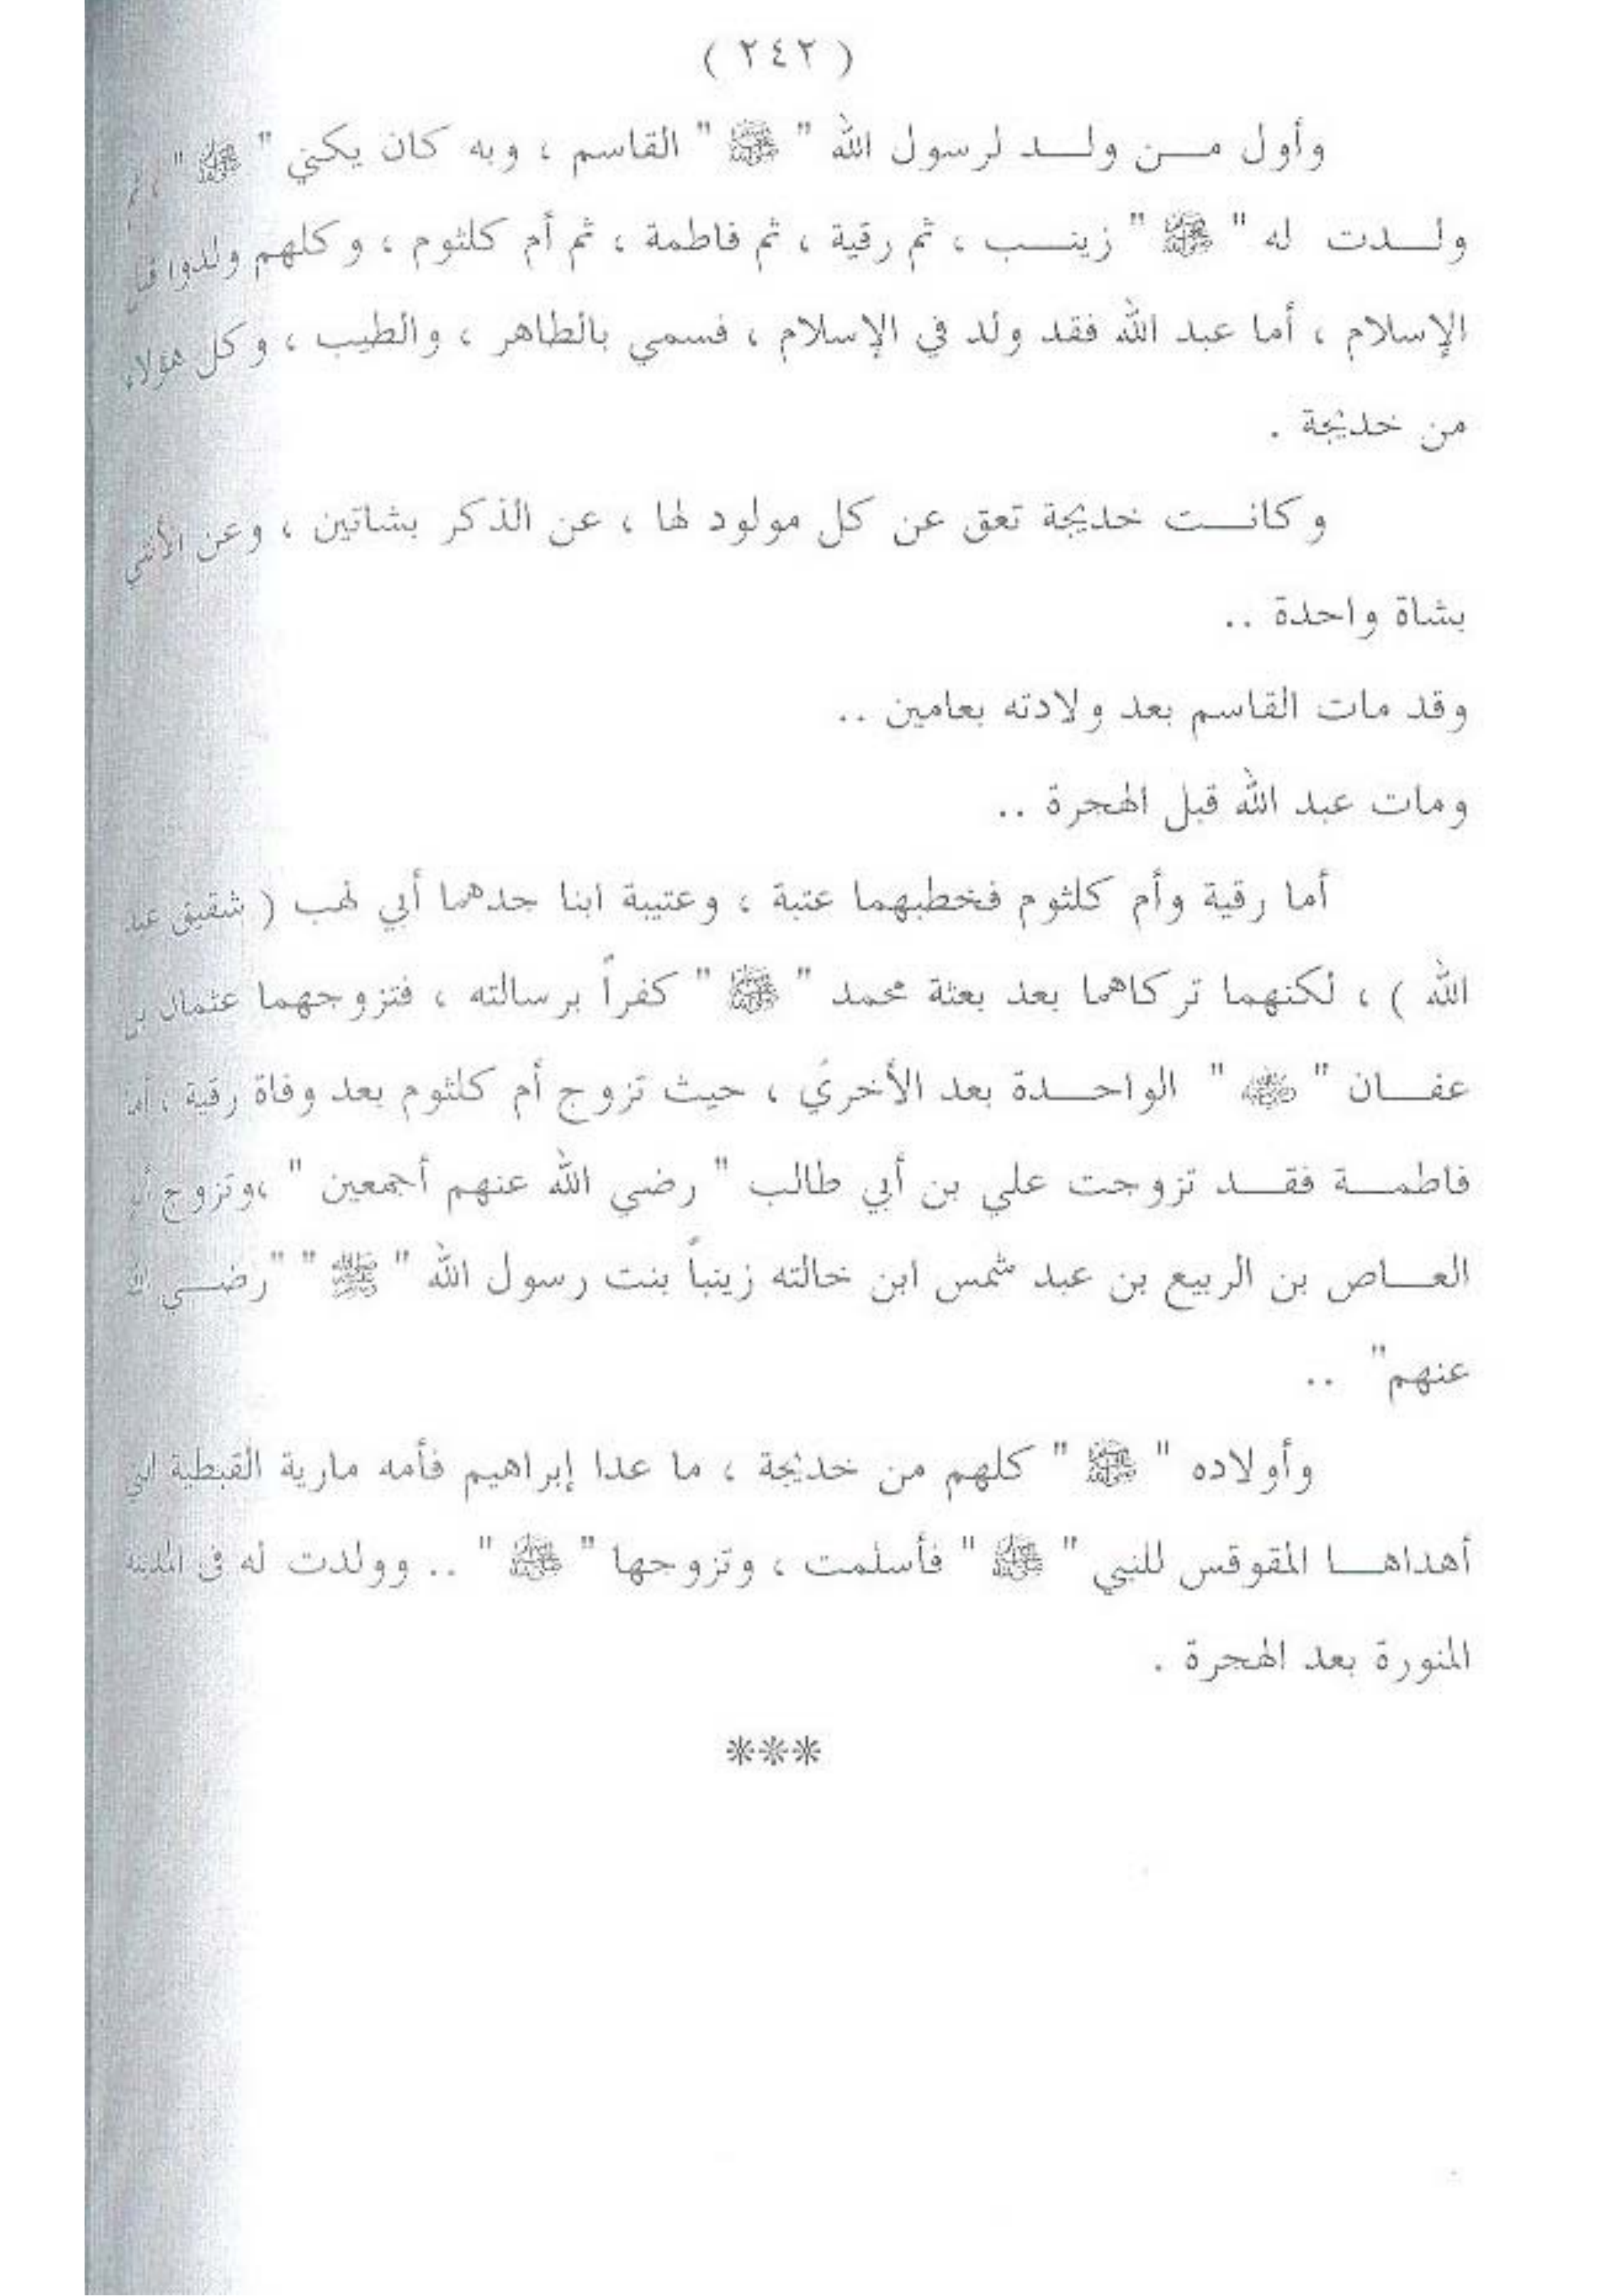 ( ٢٤٢ )
وأول مـــن ولـــد لرسول الله " ﷺ " القاسم ، وبه كان يكني " ﷺ " ، ثم
ولـــدت له " ﷺ " زينـــب ، ثم رقية ، ثم فاطمة ، ثم أم كلثوم ، وكلهم ولدوا قبل
الإسلام ، أما عبد الله فقد ولد في الإسلام ، فسمي بالطاهر ، والطيب ، وكل هؤلاء
من خديجة .
وكانـــت خديجة تعق عن كل مولود لها ، عن الذكر بشاتين ، وعن الأنثي
بشاة واحدة ..
وقد مات القاسم بعد ولادته بعامين ..
ومات عبد الله قبل الهجرة ..
أما رقية وأم كلثوم فخطبهما عتبة ، وعتيبة ابنا جدهما أبي لهب ( شقيق عبد
الله ) ، لكنهما تركاهما بعد بعثة محمد " ﷺ " كفراً برسالته ، فتزوجهما عثمان بن
عفـــان " رضي الله عنه " الواحـــدة بعد الأخري ، حيث تزوج أم كلثوم بعد وفاة رقية ، أما
فاطمـــة فقـــد تزوجت علي بن أبي طالب " رضي الله عنهم أجمعين " ،وتزوج أبو
العـــاص بن الربيع بن عبد شمس ابن خالته زينباً بنت رسول الله " ﷺ " "رضـــي الله
عنهم" ..
وأولاده " ﷺ " كلهم من خديجة ، ما عدا إبراهيم فأمه مارية القبطية التي
أهداهـــا المقوقس للنبي " ﷺ " فأسلمت ، وتزوجها " ﷺ " .. وولدت له في المدينة
المنورة بعد الهجرة .
***